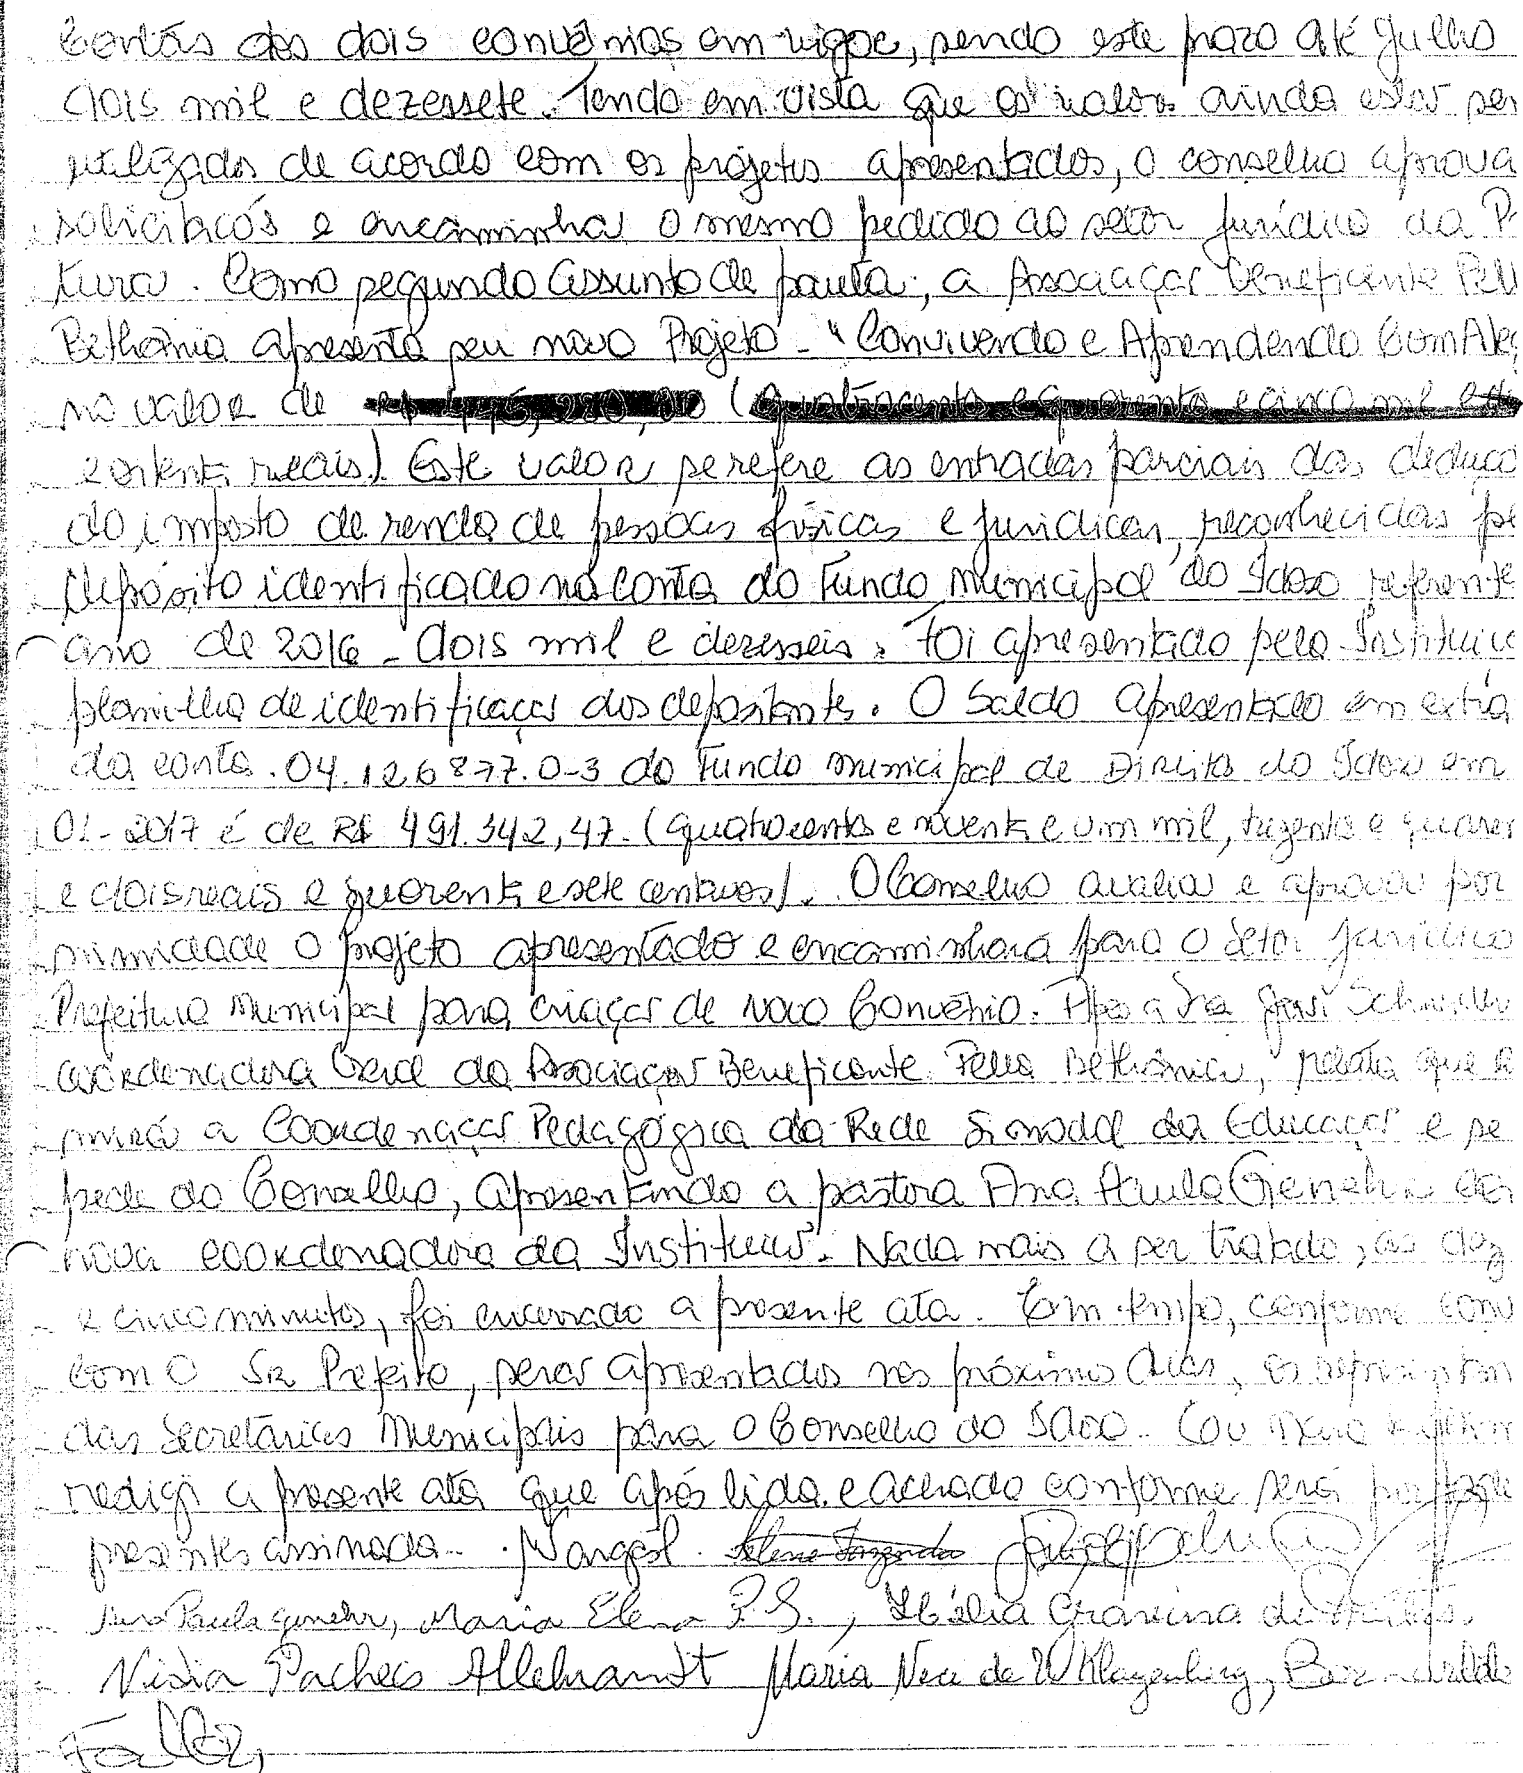 contas dos dois convênios em vigor, sendo este prazo até Julho
dois mil e dezessete. Tendo em vista que os valores ainda estar ser
utilizados de acordo com os projetos apresentados, o conselho aprova
solicitações e encaminhar o mesmo pedido ao setor jurídico da P
tura. Como segundo assunto de pauta, a Associaçar Beneficente Pell
Bethânia apresenta seu novo Projeto - "Convivendo e Aprendendo Com Aleg
no valor de (quatrocentos e quarenta e cinco mil e
reais). Este valor se refere as entradas parciais das deduço
do imposto de renda de pessoas físicas e jurídicas, reconhecidas pe
depósito identificado na conta do Fundo Municipal do Idoso referente
ano de 2016 - dois mil e dezesseis. Foi apresentado pela Instituiç
planilha de identificaçar dos depositantes. O Saldo apresentado em extra
da conta. 04.126877.0-3 do Fundo Municipal de Direito do Idoso em
01-2017 é de R$ 491.342,47. (quatrocentos e noventa e um mil, trezentos e quaren
e dois reais e quarenta e sete centavos). O Conselho avaliar e aprovar por
nimidade o projeto apresentado e encaminhará para o Setor Jurídico
Prefeitura Municipal para criaçar de novo Convênio. Após a Sra Schneider
coordenadora Geral da Associaçar Beneficente Pella Bethânia, relata que a
sumirá a Coordenaçar Pedagógica da Rede Sinodal da Educaçar e se
pede do Conselho, apresentando a pastora Ana Paula Genehr
nova coordenadora da Instituiçar. Nada mais a ser tratado, as dez
e cinco minutos, foi encerrado a presente ata. Em tempo, conforme conv
com o Sr. Prefeito, serar apresentados nos próximos dias, os representan
das Secretárias Municipais para o Conselho do Idoso. Eu
redigi a presente ata que após lida e achado conforme será por
presentes assinada. Nargél.
Ana Paula Genehr, Maria Elena P.S., Gravina de Freitas.
Nisia Pacheco Allebrandt Maria Neci de W Klagenberg,